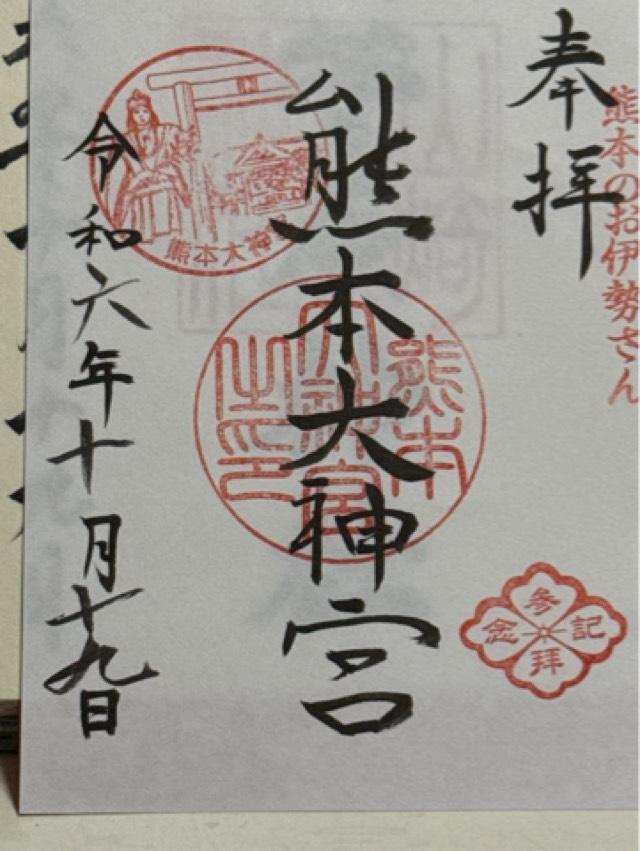 奉拝
熊本のお伊勢さん
熊本大神宮
熊本
大神宮
之印
熊本大神宮
参拝
記念
令和六年十月十九日